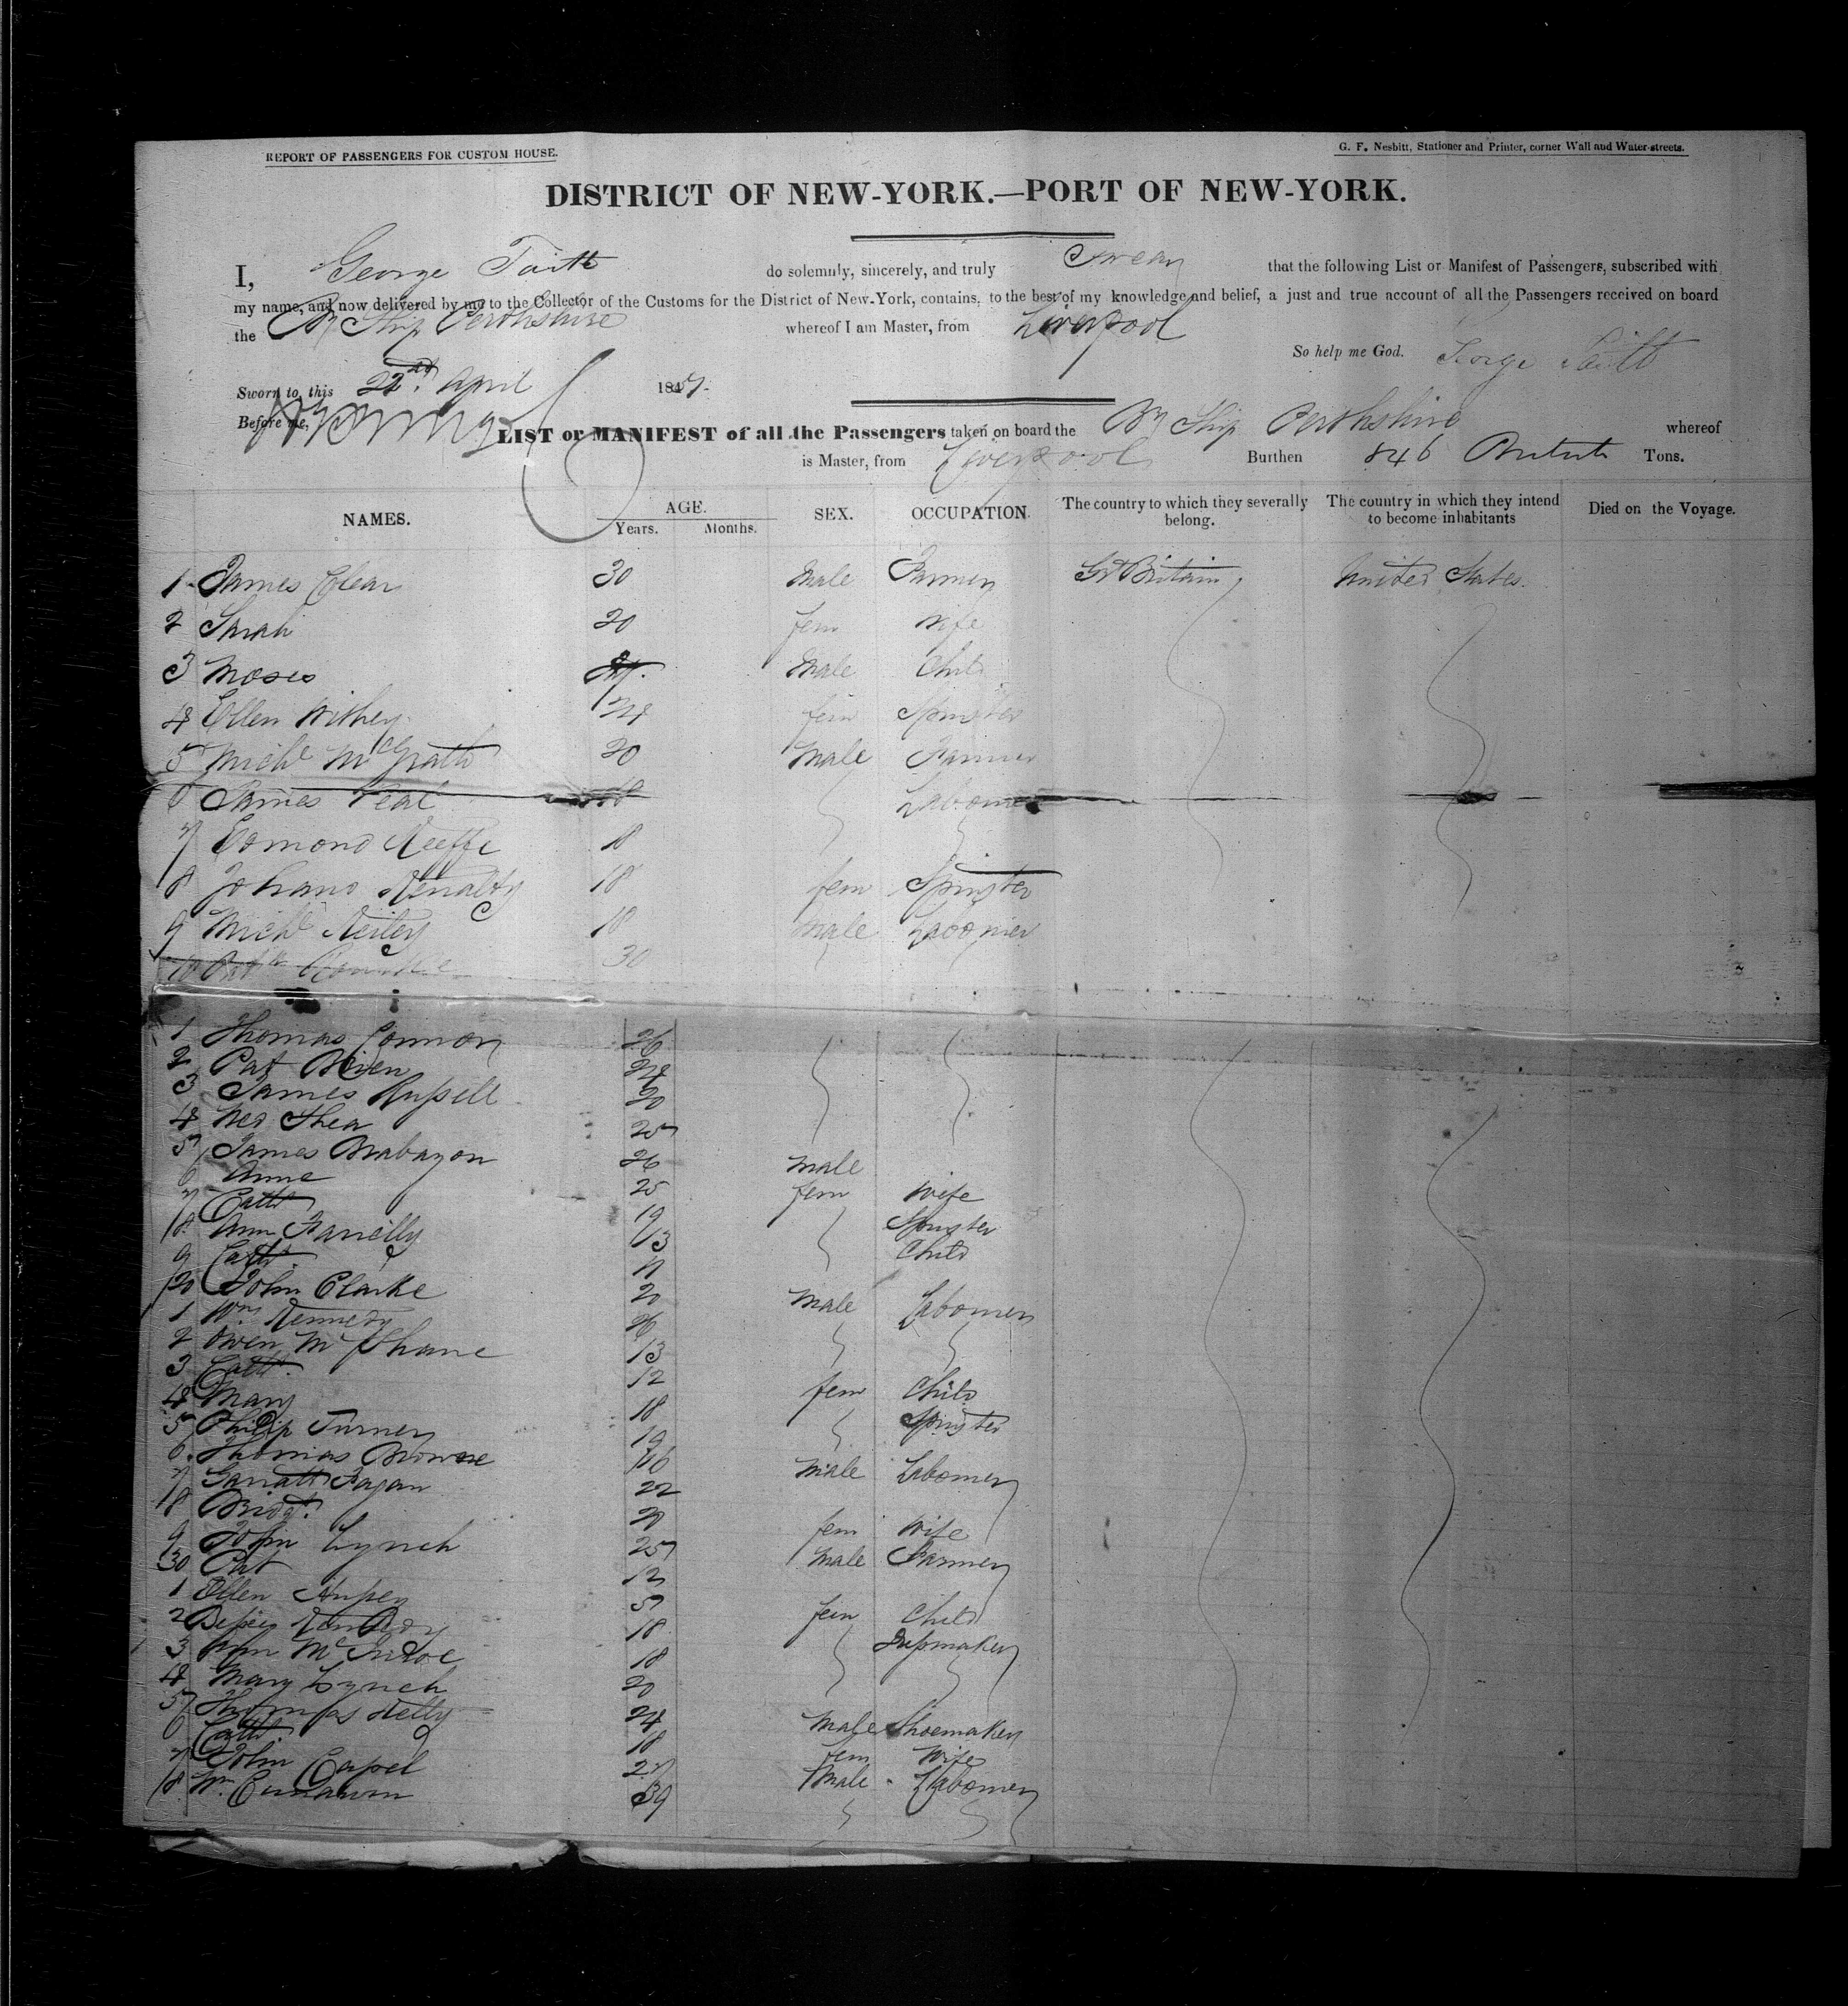 REPORT OF PASSENGERS FOR CUSTOM HOUSE.
G. F. Nesbitt, Stationer and Printer, corner Wall and Water-streets.
DISTRICT OF NEW-YORK.—PORT OF NEW-YORK.
I, George Taitt do solemnly, sincerely, and truly Swear that the following List or Manifest of Passengers, subscribed with
my name, and now delivered by me to the Collector of the Customs for the District of New-York, contains, to the best of my knowledge and belief, a just and true account of all the Passengers received on board
the Br Ship Perthshire whereof I am Master, from Liverpool
So help me God. George Taitt
Sworn to, this 22nd April 1847.
Before me,
LIST or MANIFEST of all the Passengers taken on board the Br Ship Perthshire whereof
is Master, from Liverpool Burthen 846 Tons.
NAMES. AGE. Years. Months. SEX. OCCUPATION. The country to which they severally belong. The country in which they intend to become inhabitants Died on the Voyage.
1 James Clear 30 Male Farmer Gt Britain United States.
2 Sarah 20 fem Wife
3 Moses Male Child
4 Ellen Withey 24 fem Spinster
5 Michl McGrath 20 Male Farmer
6 James 18 Labourer
7 Edmond Keeffe 18
8 Johano Kenalty 18 fem Spinster
9 Michl 18 Male Labourer
10 Patk 30
1 Thomas Connor 26
2 Pat Brien 24
3 James Russell 20
4 Ned Shea 25
5 James Brabazon 26 Male
6 Anne 25 fem Wife
7 Cathe 19 Spinster
8 Ann Farrelly 13 Child
9 Cathe 11
20 John Clarke 20 Male Labourer
1 Wm Kennedy 26
2 Owen McShane 13
3 Cathe 12 fem Child
4 Mary 18 Spinster
5 Philip Turner 19
6 Thomas Browne 16 Male Labourer
7 Garratt Fagan 22
8 Bridgt. 20 fem Wife
9 John Lynch 25 Male Farmer
30 Pat 12
1 Ellen 5 fem Child
2 Bessey 18 Dressmaker
3 Ann McEnroe 18
4 Mary Lynch 20
5 Thomas Kelly 24 Male Shoemaker
6 Cathe. 18 fem Wife
7 John Capel 27 Male Labourer
8 Wm 39